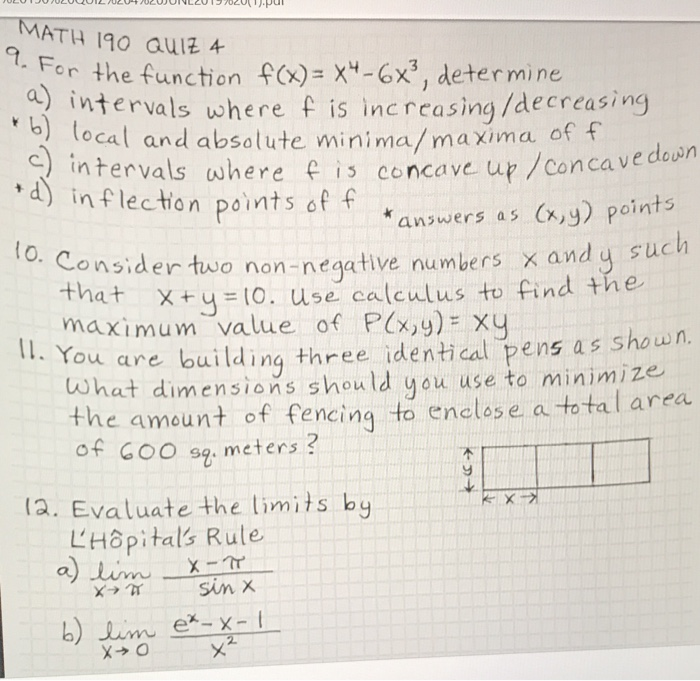 MATH 190 QUIZ 4
9. For the function f(x) = x⁴-6x³, determine
a) intervals where f is increasing/decreasing
* b) local and absolute minima/maxima of f
c) intervals where f is concave up/concave down
* d) inflection points of f
* answers as (x,y) points
10. Consider two non-negative numbers x and y such
that x+y=10. Use calculus to find the
maximum value of P(x,y) = xy
11. You are building three identical pens as shown.
What dimensions should you use to minimize
the amount of fencing to enclose a total area
of 600 sq. meters?
y
x
12. Evaluate the limits by
L'Hôpital's Rule
a) lim x→π (x-π)/(sin x)
b) lim x→0 (eˣ-x-1)/(x²)